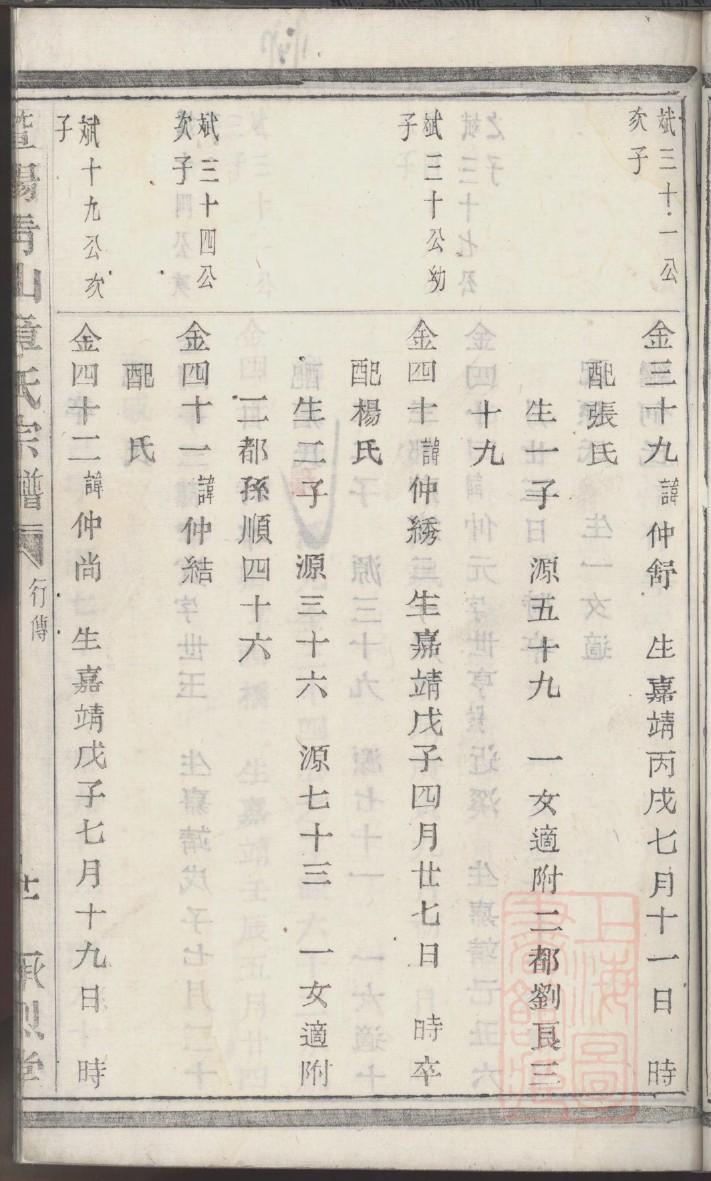 斌三十一公
次子
金三十九諱仲舒 生嘉靖丙戌七月十一日 時
配張氏
生一子 源五十九 一女適附二都劉良三
十九
斌三十公幼
子
金四十諱仲綉 生嘉靖戊子四月廿七日 時卒
配楊氏
生二子 源三十六 源七十三 一女適附
二都孫順四十六
斌三十四公
次子
金四十一諱仲結
配 氏
斌十九公次
子
金四十二諱仲尚 生嘉靖戊子七月十九日 時
暨陽青山章氏宗譜
行傳
承烈堂
上海圖
書館藏